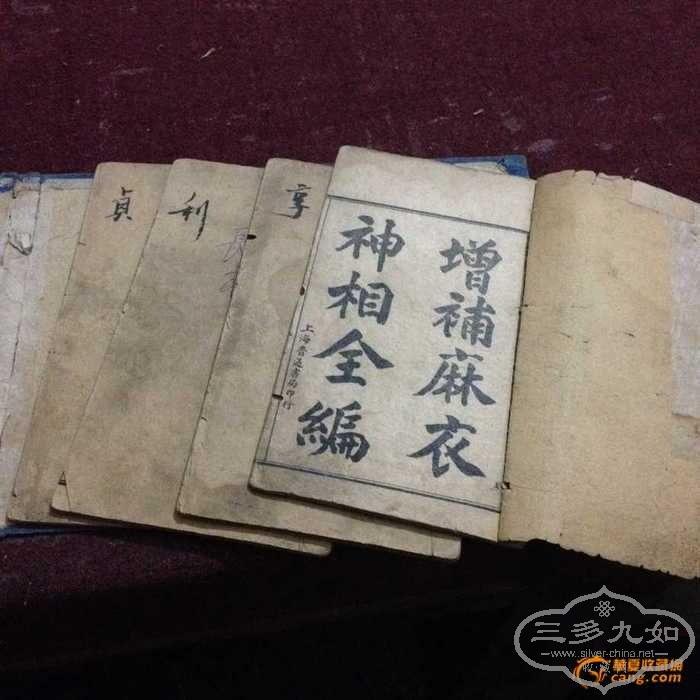 增補麻衣
神相全編
上海普通書局印行
亨
利
貞
三多九如
www.silver-china.net
華夏收藏網
cang.com